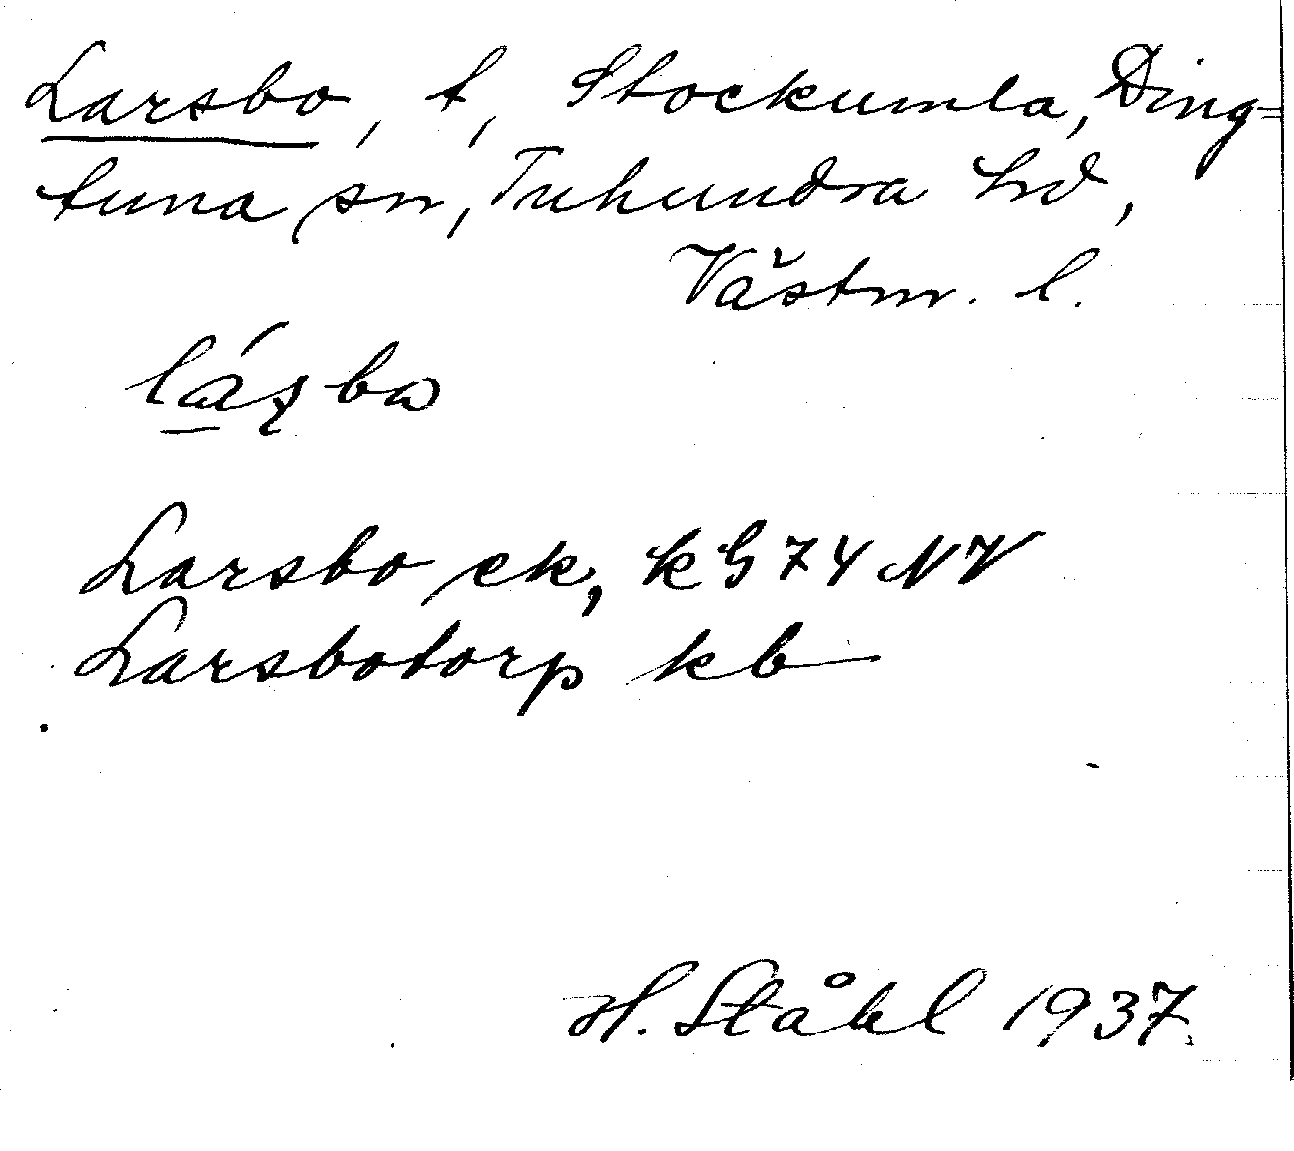 Larsbo, t, Stockumla, Ding-
tuna sn, Tuhundra hd,
Västm. l.
lásbo
Larsbo ek, kG 74 NV
Larsbotorp kb
H. Ståhl 1937.